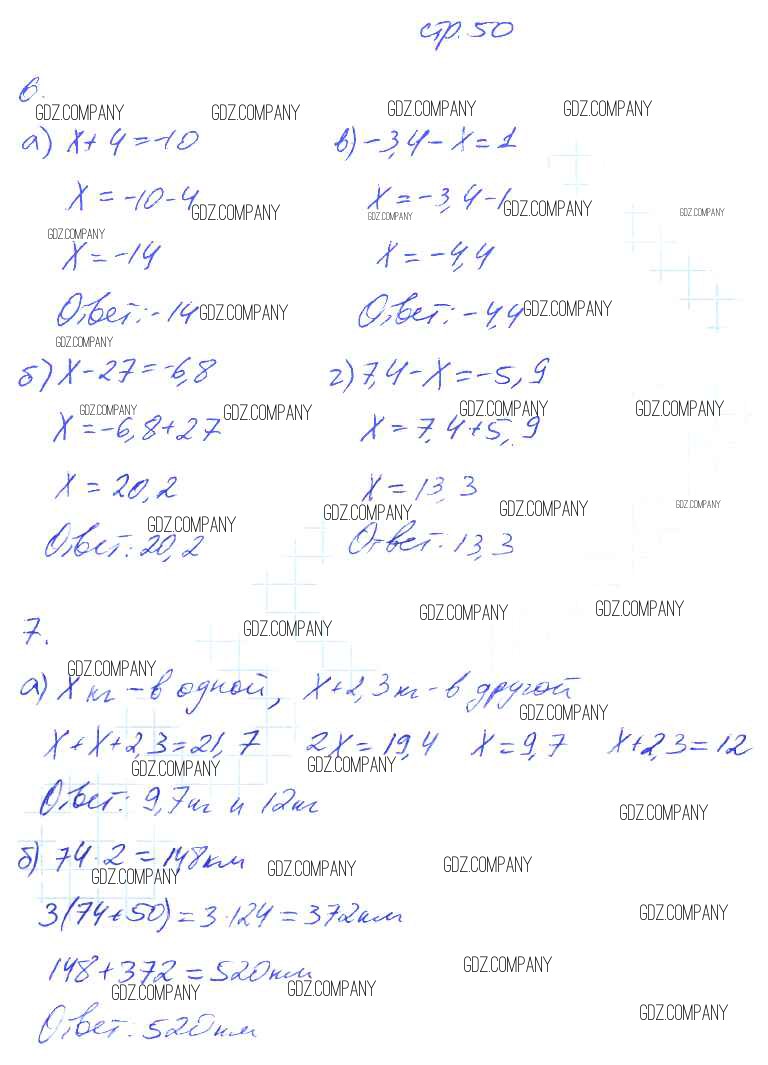 стр. 50
6.
GDZ.COMPANY GDZ.COMPANY GDZ.COMPANY GDZ.COMPANY
а) x + 4 = -10 в) -3,4 - x = 1
x = -10 - 4 x = -3,4 - 1
GDZ.COMPANY GDZ.COMPANY GDZ.COMPANY GDZ.COMPANY
GDZ.COMPANY
x = -14 x = -4,4
Ответ: -14 GDZ.COMPANY Ответ: -4,4 GDZ.COMPANY
GDZ.COMPANY
б) x - 27 = -6,8 г) 7,4 - x = -5,9
GDZ.COMPANY GDZ.COMPANY GDZ.COMPANY GDZ.COMPANY
x = -6,8 + 27 x = 7,4 + 5,9
x = 20,2 x = 13,3
GDZ.COMPANY GDZ.COMPANY GDZ.COMPANY GDZ.COMPANY
Ответ: 20,2 Ответ: 13,3
GDZ.COMPANY GDZ.COMPANY GDZ.COMPANY
7.
GDZ.COMPANY
а) x кг - в одной, x + 2,3 кг - в другой
GDZ.COMPANY
x + x + 2,3 = 21,7 2x = 19,4 x = 9,7 x + 2,3 = 12
GDZ.COMPANY GDZ.COMPANY
Ответ: 9,7 кг и 12 кг
GDZ.COMPANY
б) 74 · 2 = 148 км
GDZ.COMPANY GDZ.COMPANY GDZ.COMPANY
3(74 + 50) = 3 · 124 = 372 км GDZ.COMPANY
148 + 372 = 520 км GDZ.COMPANY
GDZ.COMPANY GDZ.COMPANY GDZ.COMPANY
Ответ: 520 км